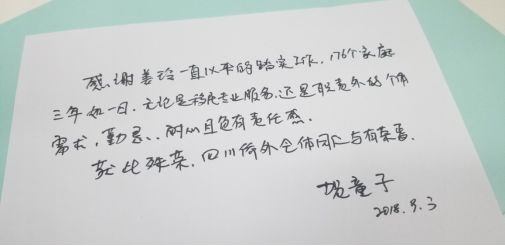 感谢姜玲一直以来的踏实工作,176个家庭
三年如一日,无论是移民专业服务,还是职责外的个体
需求,勤恳、、耐心且负有责任感.
获此殊荣,四川侨外全体同仁与有荣焉.
童子
2018.9.3